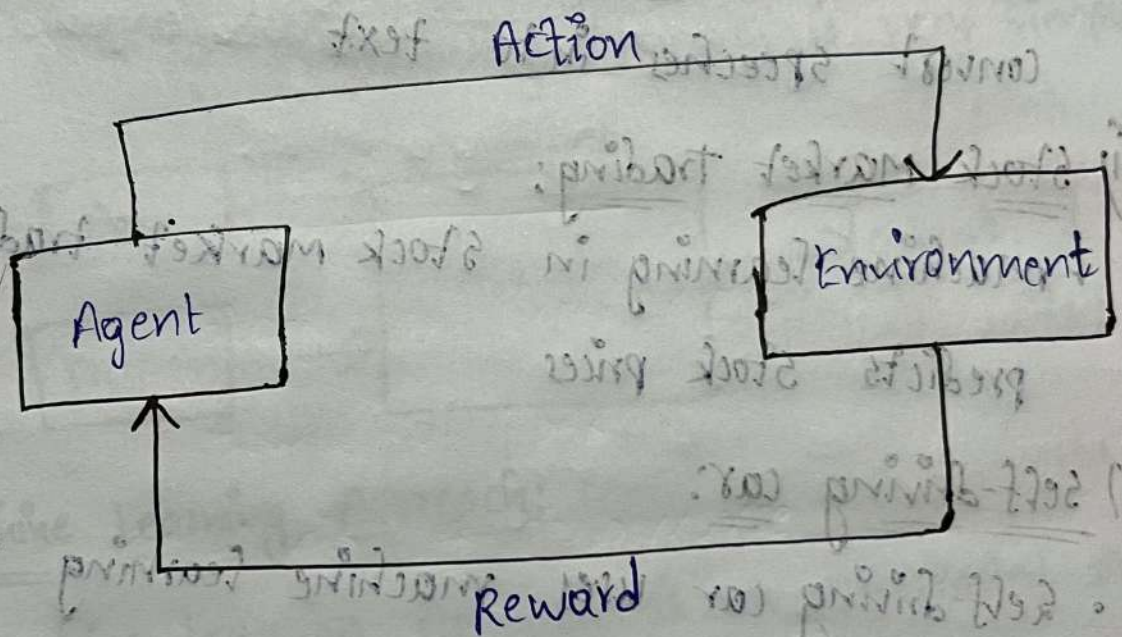 Action
Agent
Environment
Reward